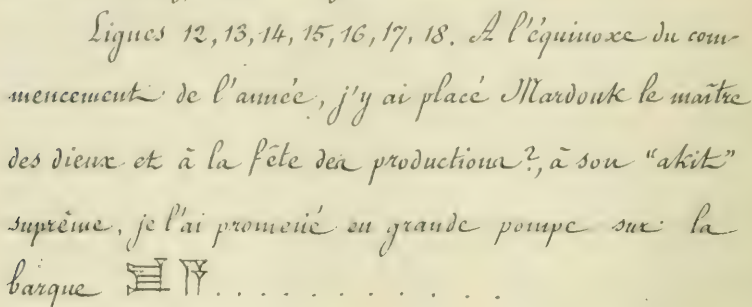 Lignes 12, 13, 14, 15, 16, 17, 18. A l'équinoxe du com-
mencement de l'année, j'y ai placé Mardouk le maître
des dieux et à la fête des productions?, à son "akit"
suprême, je l'ai promené en grande pompe sur la
barque . . . . . . . . . . . .